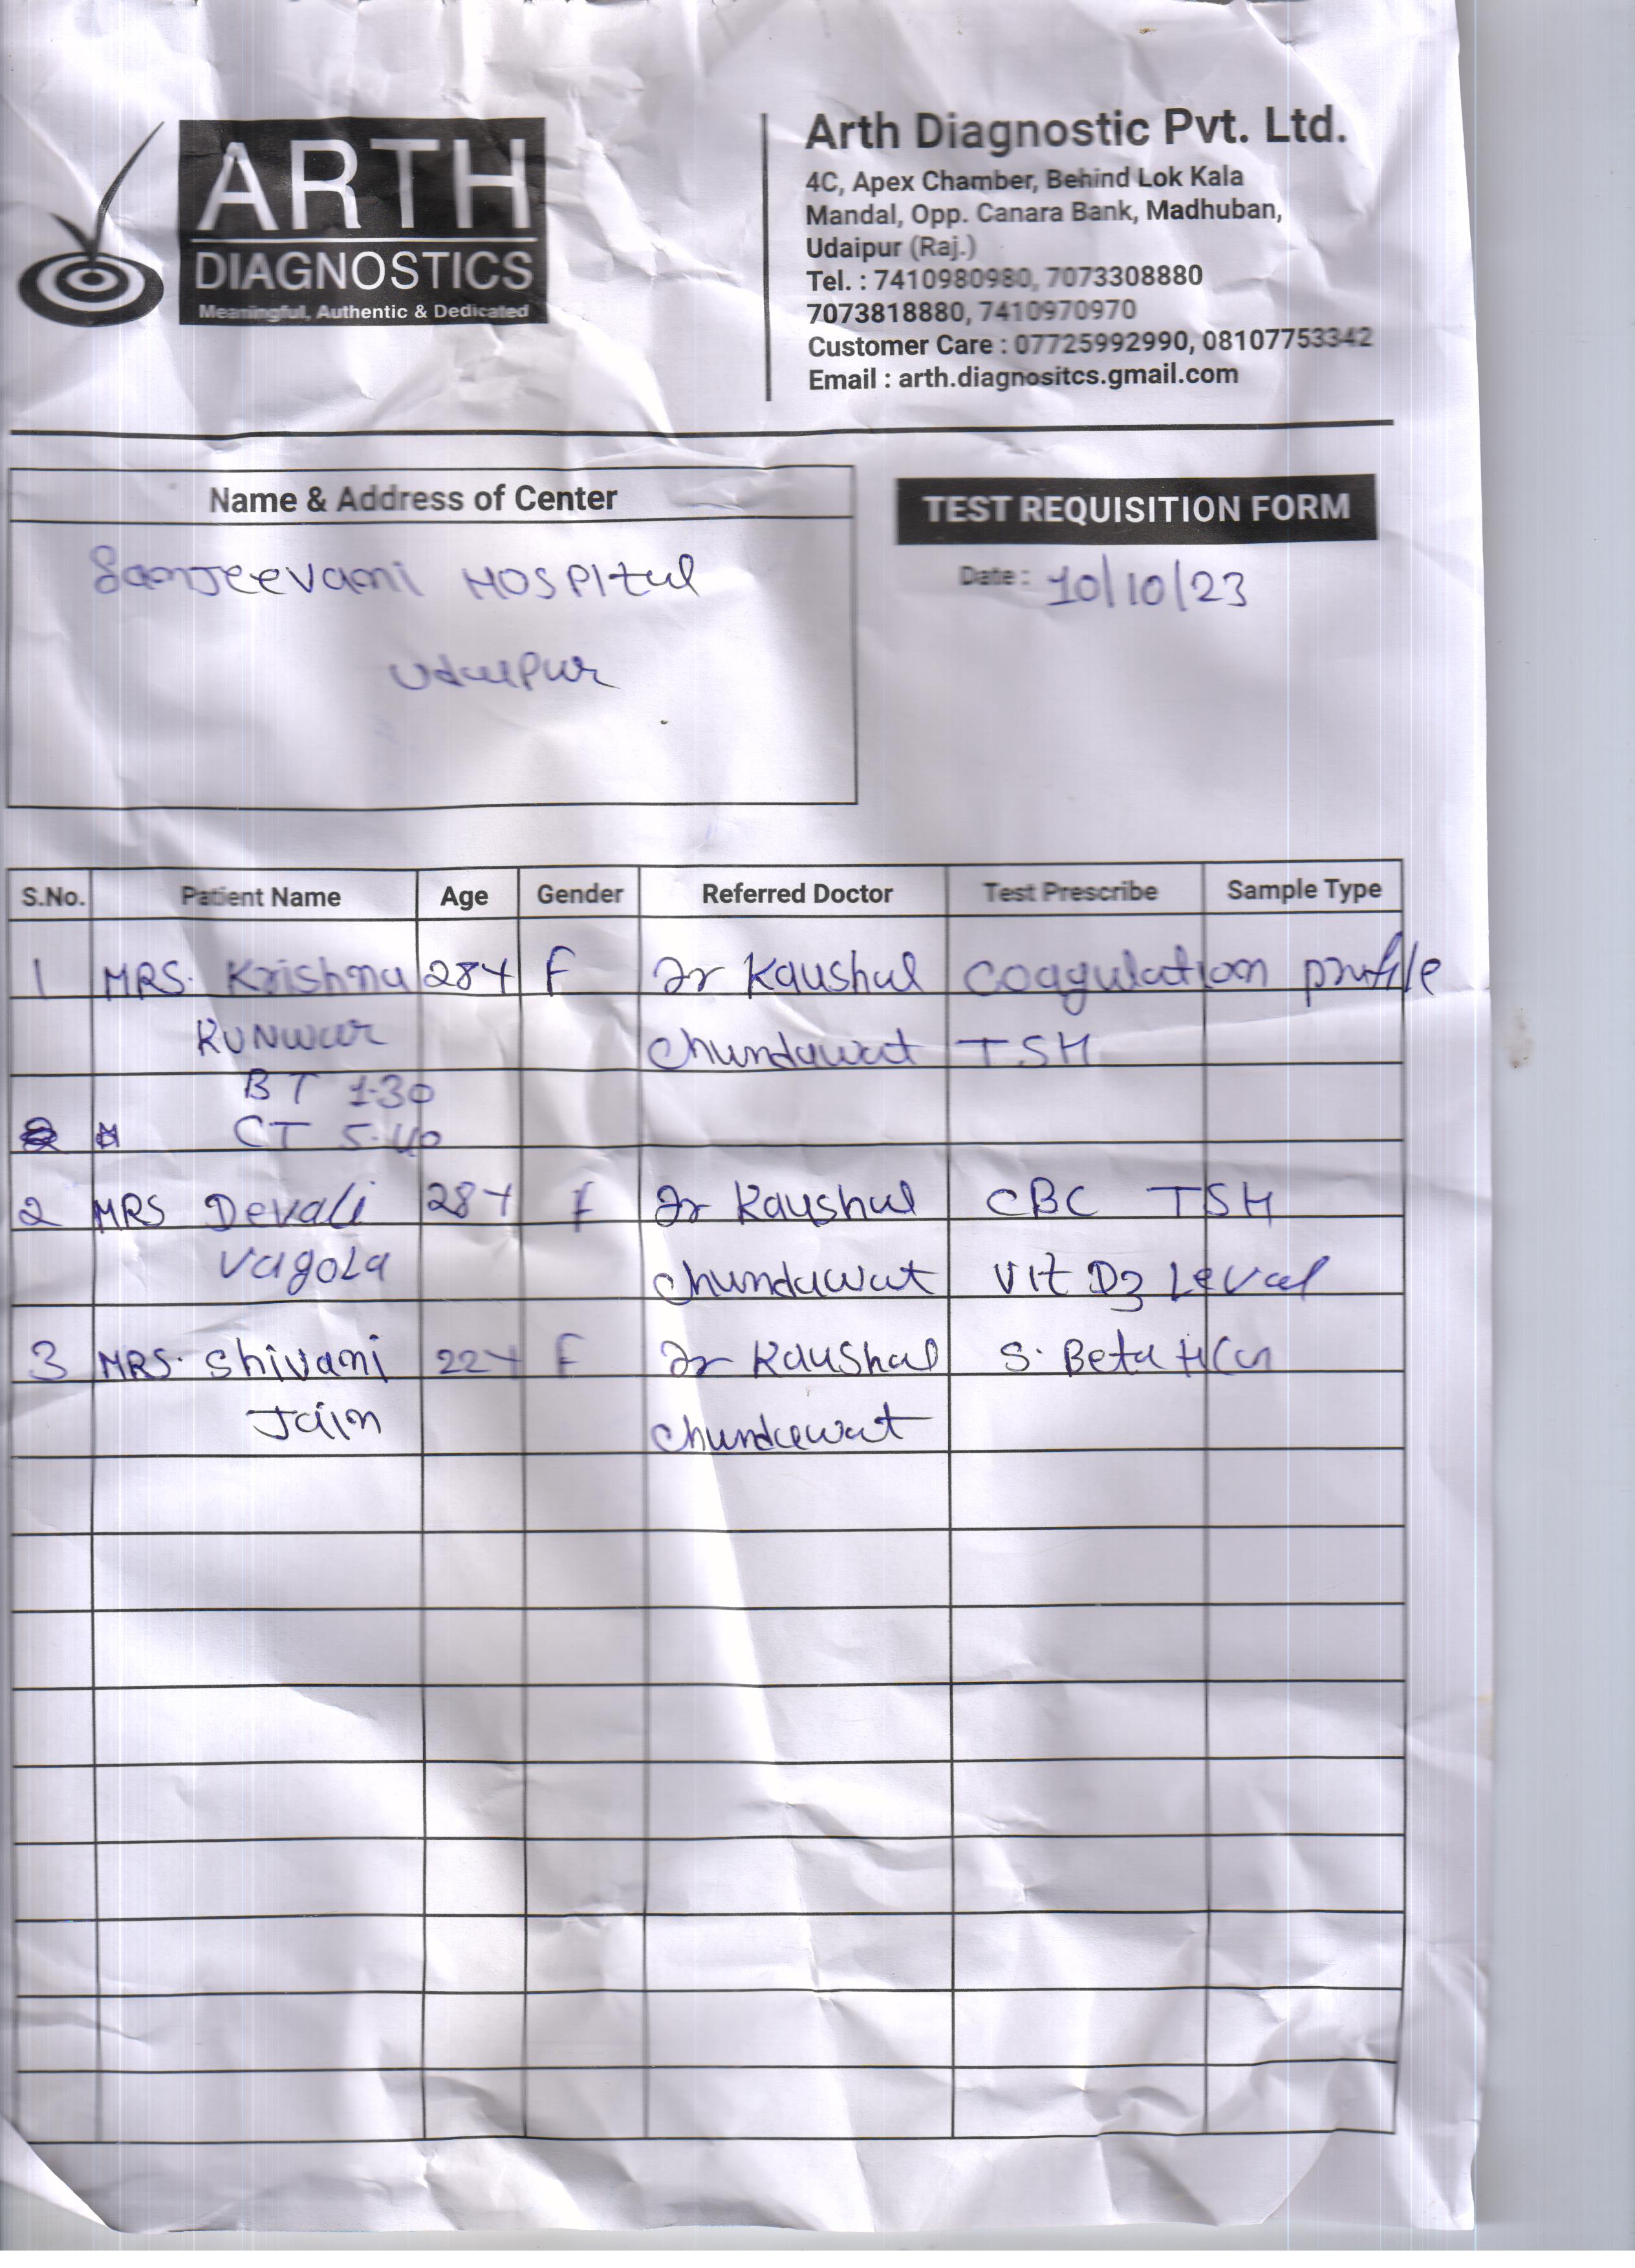 ARTH
DIAGNOSTICS
Meaningful, Authentic & Dedicated
Arth Diagnostic Pvt. Ltd.
4C, Apex Chamber, Behind Lok Kala
Mandal, Opp. Canara Bank, Madhuban,
Udaipur (Raj.)
Tel. : 7410980980, 7073308880
7073818880, 7410970970
Customer Care : 07725992990, 08107753342
Email : arth.diagnositcs.gmail.com
Name & Address of Center
Sanjeevani HOSPItal
Udaipur
TEST REQUISITION FORM
Date : 10/10/23
S.No. Patient Name Age Gender Referred Doctor Test Prescribe Sample Type
1 MRS. Krishna 28Y F Dr Kaushal Coagulation profile
KUNWar Chundawat TSH
BT 1.30
CT 5.40
2 MRS Devali 28Y F Dr Kaushal CBC TSH
Vagola Chundawat Vit D3 Leval
3 MRS. Shivani 22Y F Dr Kaushal S. Beta HCG
Jain Chundawat